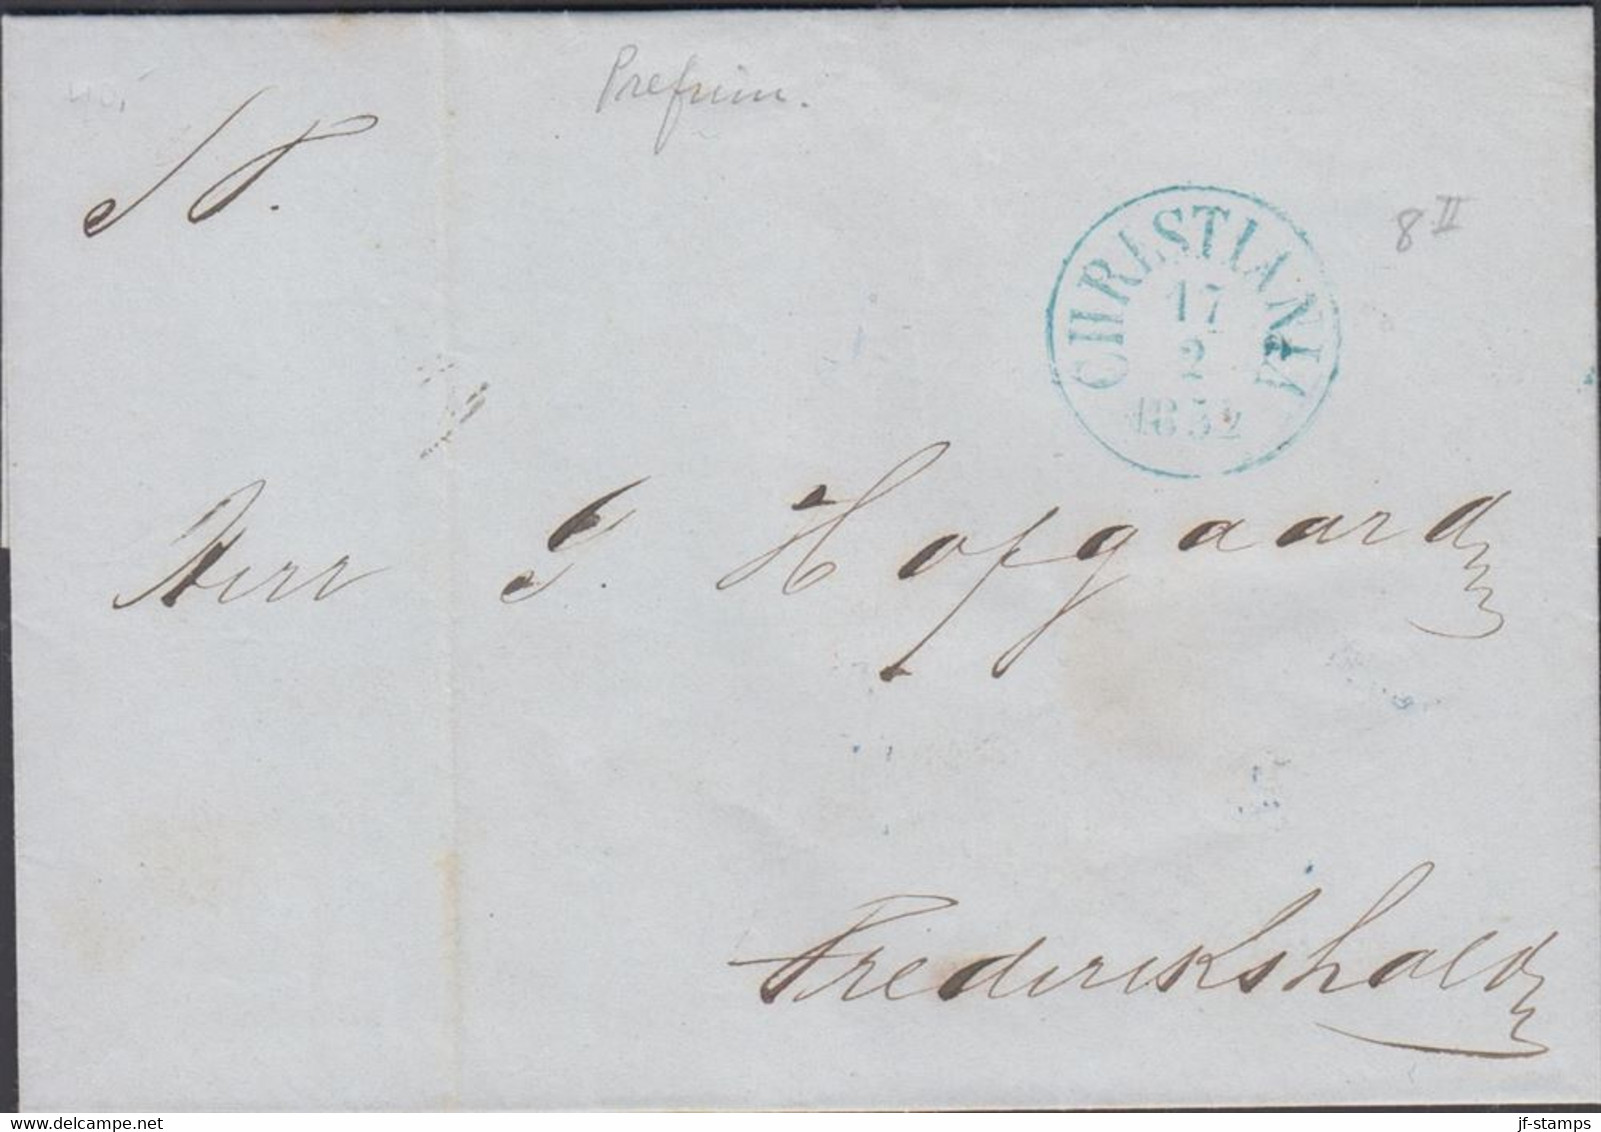 40,
Prefrim.
S T.
CHRISTIANIA
17
2
1852
8 II
Herr G. Hofgaard
Frederikshald
delcampe.net
jf-stamps